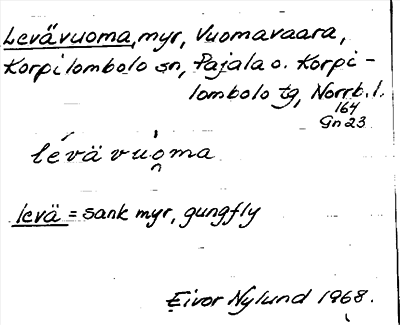 Levävuoma, myr, Vuomavaara,
Korpilombolo sn, Pajala o. Korpi-
lombolo tg, Norrb. l.
164
Gn 23
lévävuòma
levä = sank myr, gungfly
Eivor Nylund 1968.